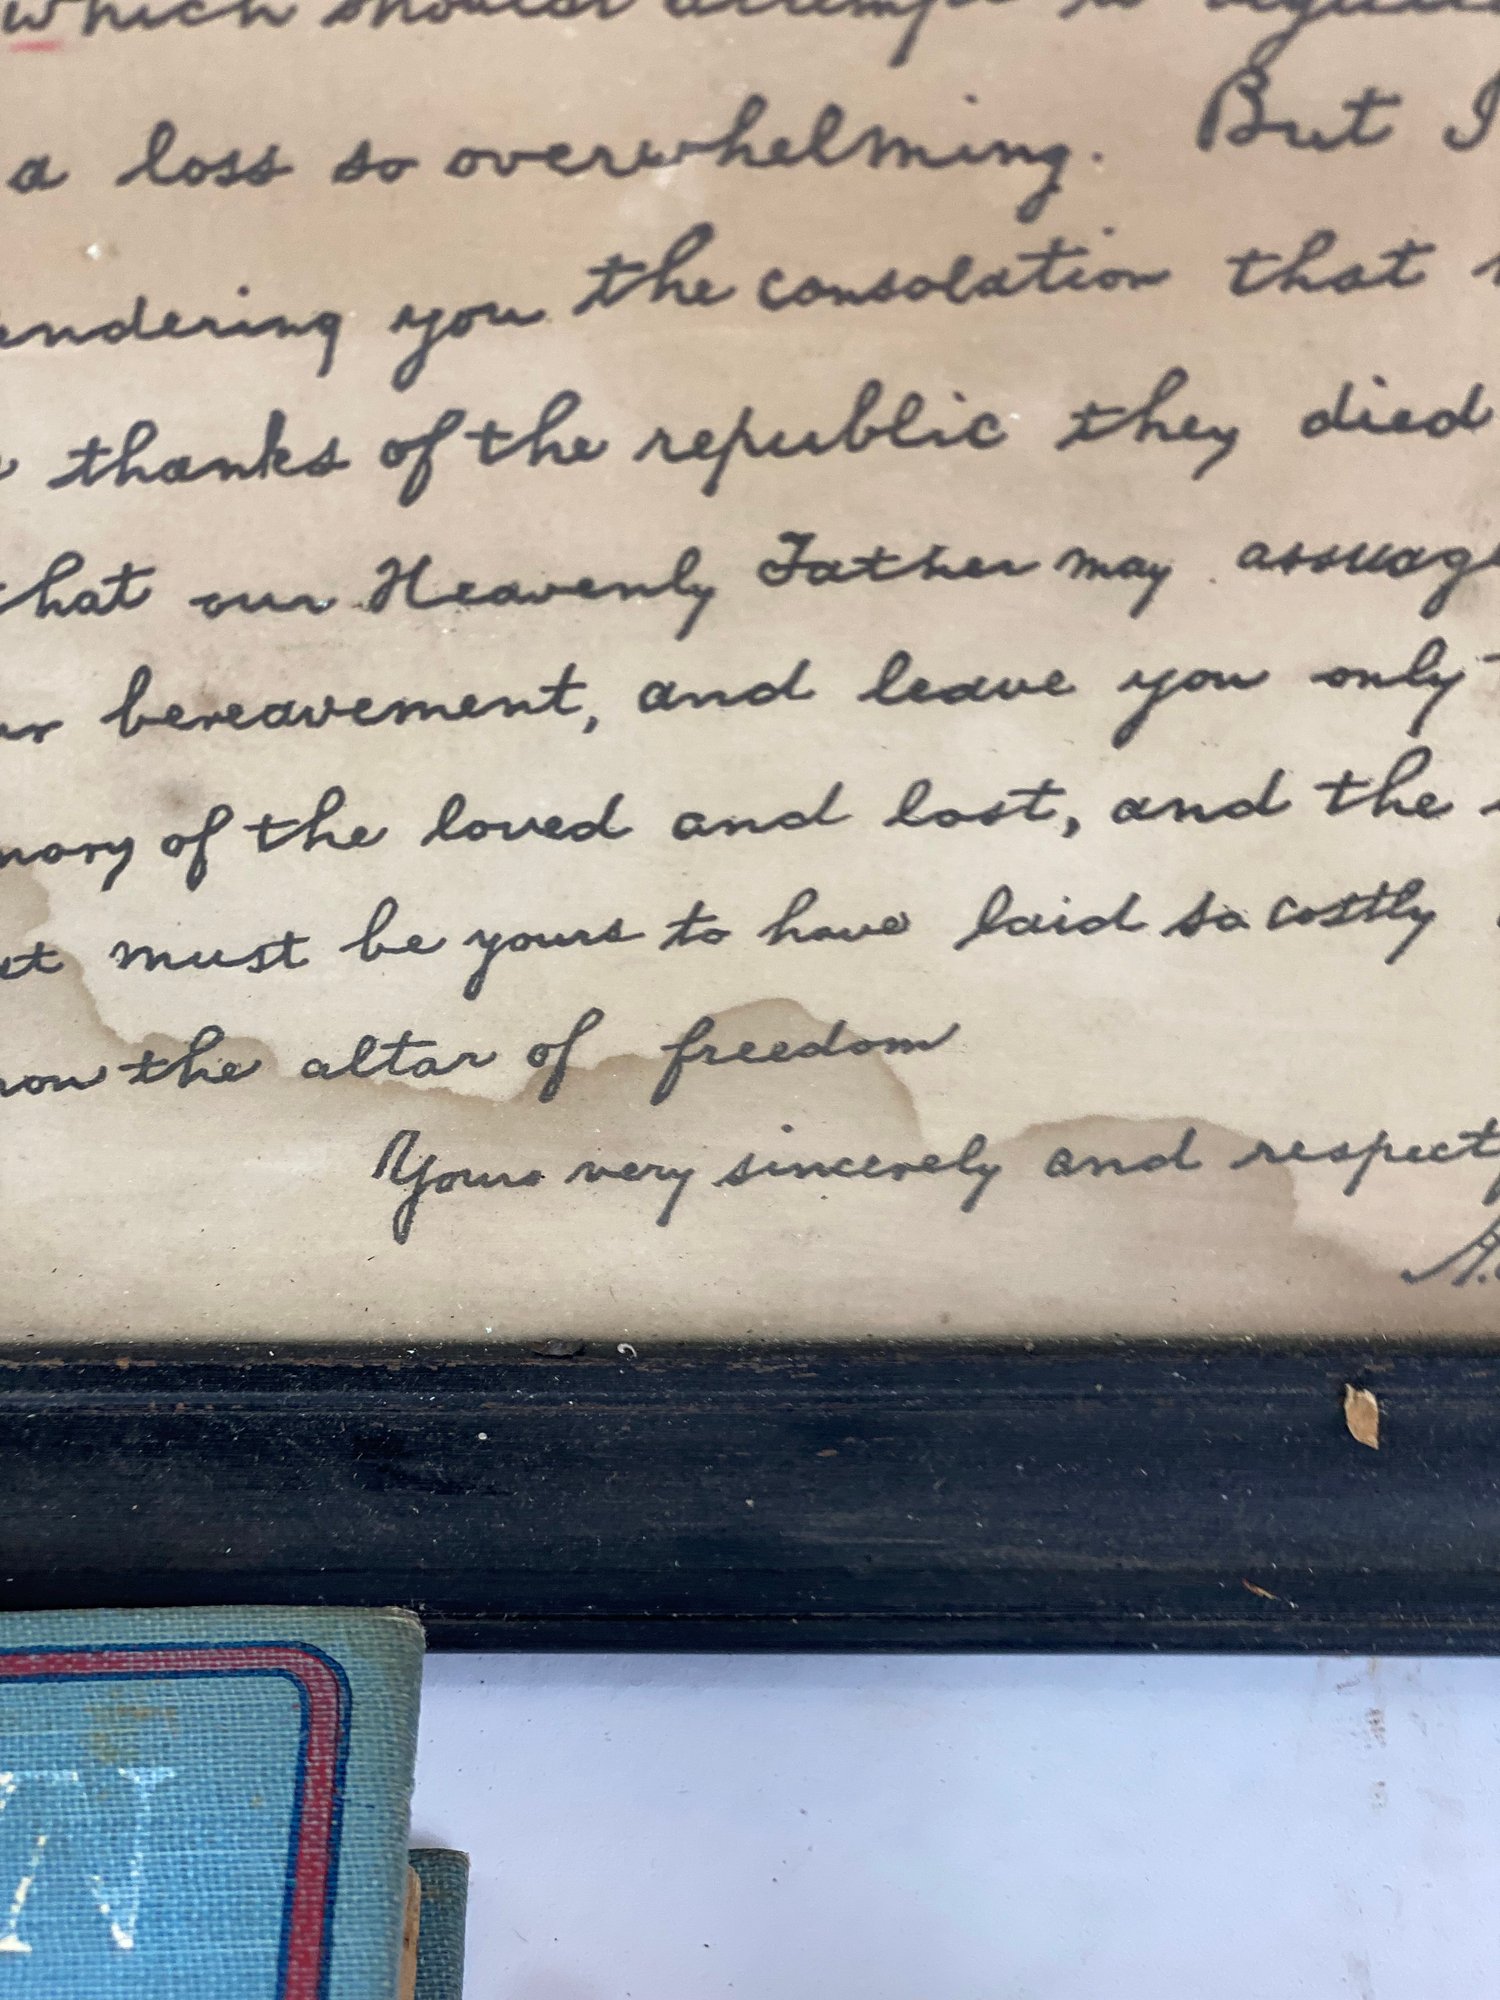 which should attempt to
a loss so overwhelming. But I
endering you the consolation that
thanks of the republic they died
that our Heavenly Father may assuage
bereavement, and leave you only
mory of the loved and lost, and the
must be yours to have laid so costly
the altar of freedom
Yours very sincerely and respect
A.
N